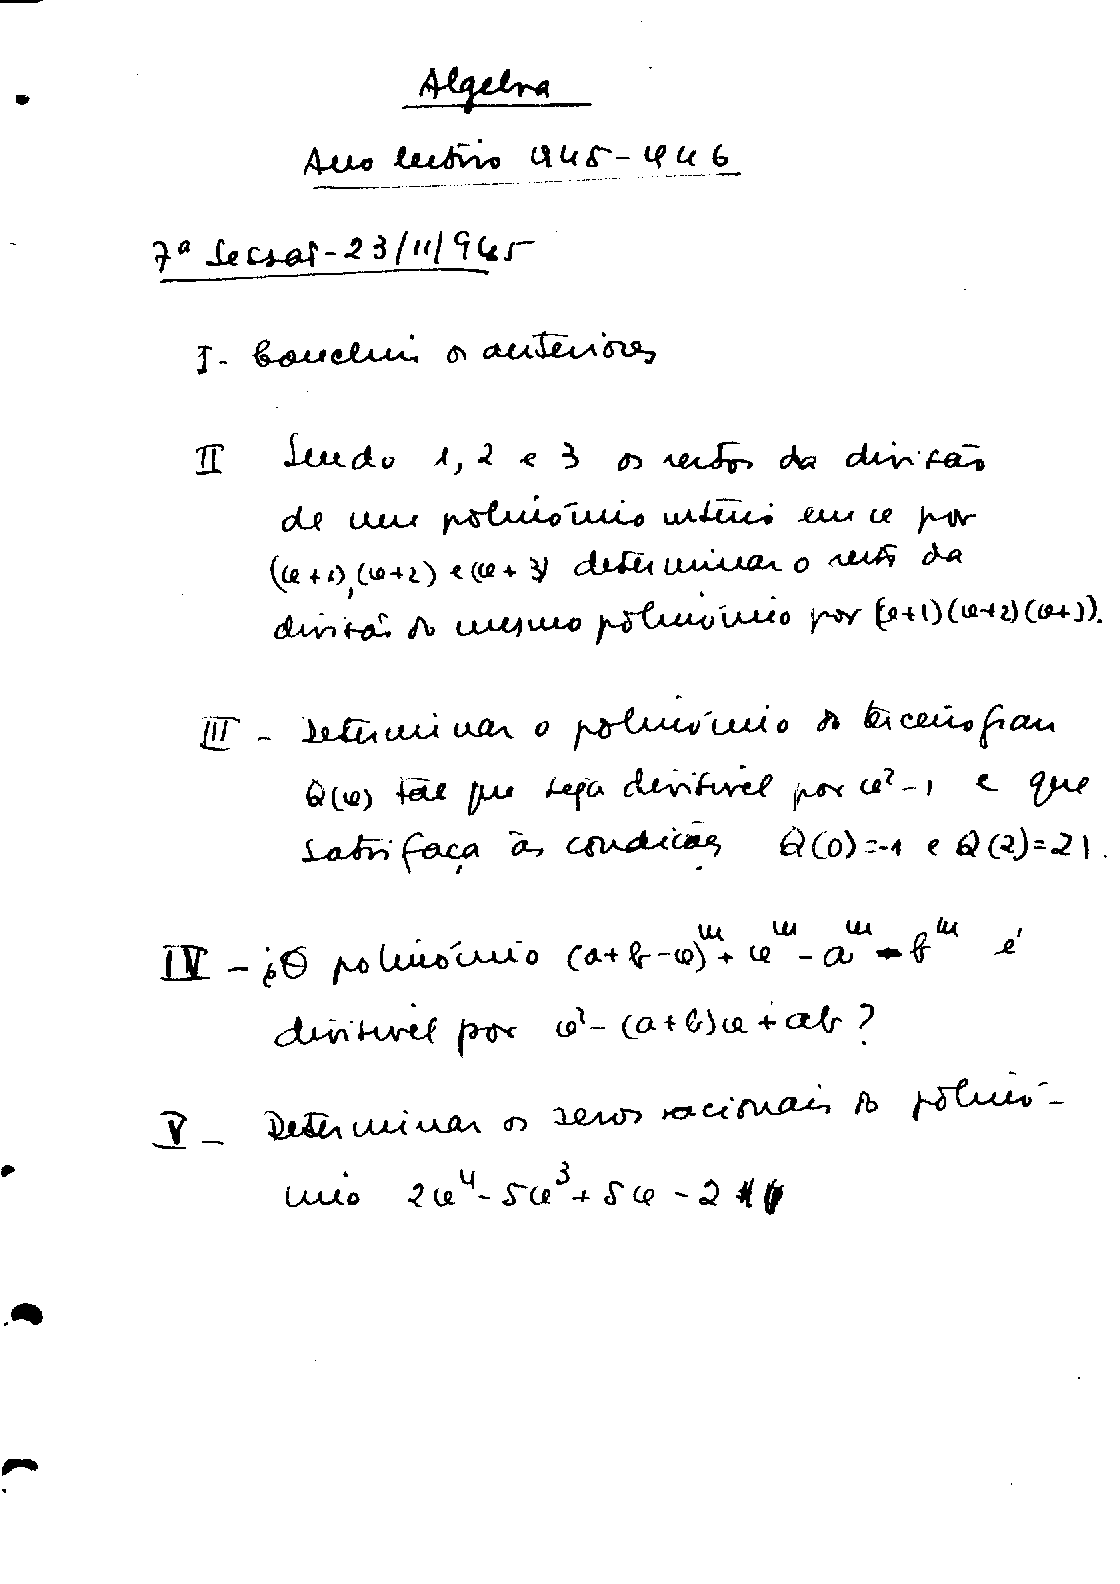 Algebra
Ano lectivo 945-946
7ª Sessão - 23/11/945
I - Concluir os anteriores
II Sendo 1, 2 e 3 os restos da divisão
de um polinómio inteiro em x por
(x+1), (x+2) e (x+3) determinar o resto da
divisão do mesmo polinómio por (x+1)(x+2)(x+3).
III - Determinar o polinómio do terceiro grau
Q(x) tal que seja divisivel por x²-1 e que
satisfaça às condições Q(0)=-1 e Q(2)=21.
IV - ¿O polinómio (a+b-x)ᵐ + xᵐ - aᵐ - bᵐ é
divisivel por x² - (a+b)x + ab ?
V - Determinar os zeros racionais do polinó-
mio 2x⁴ - 5x³ + 5x - 2